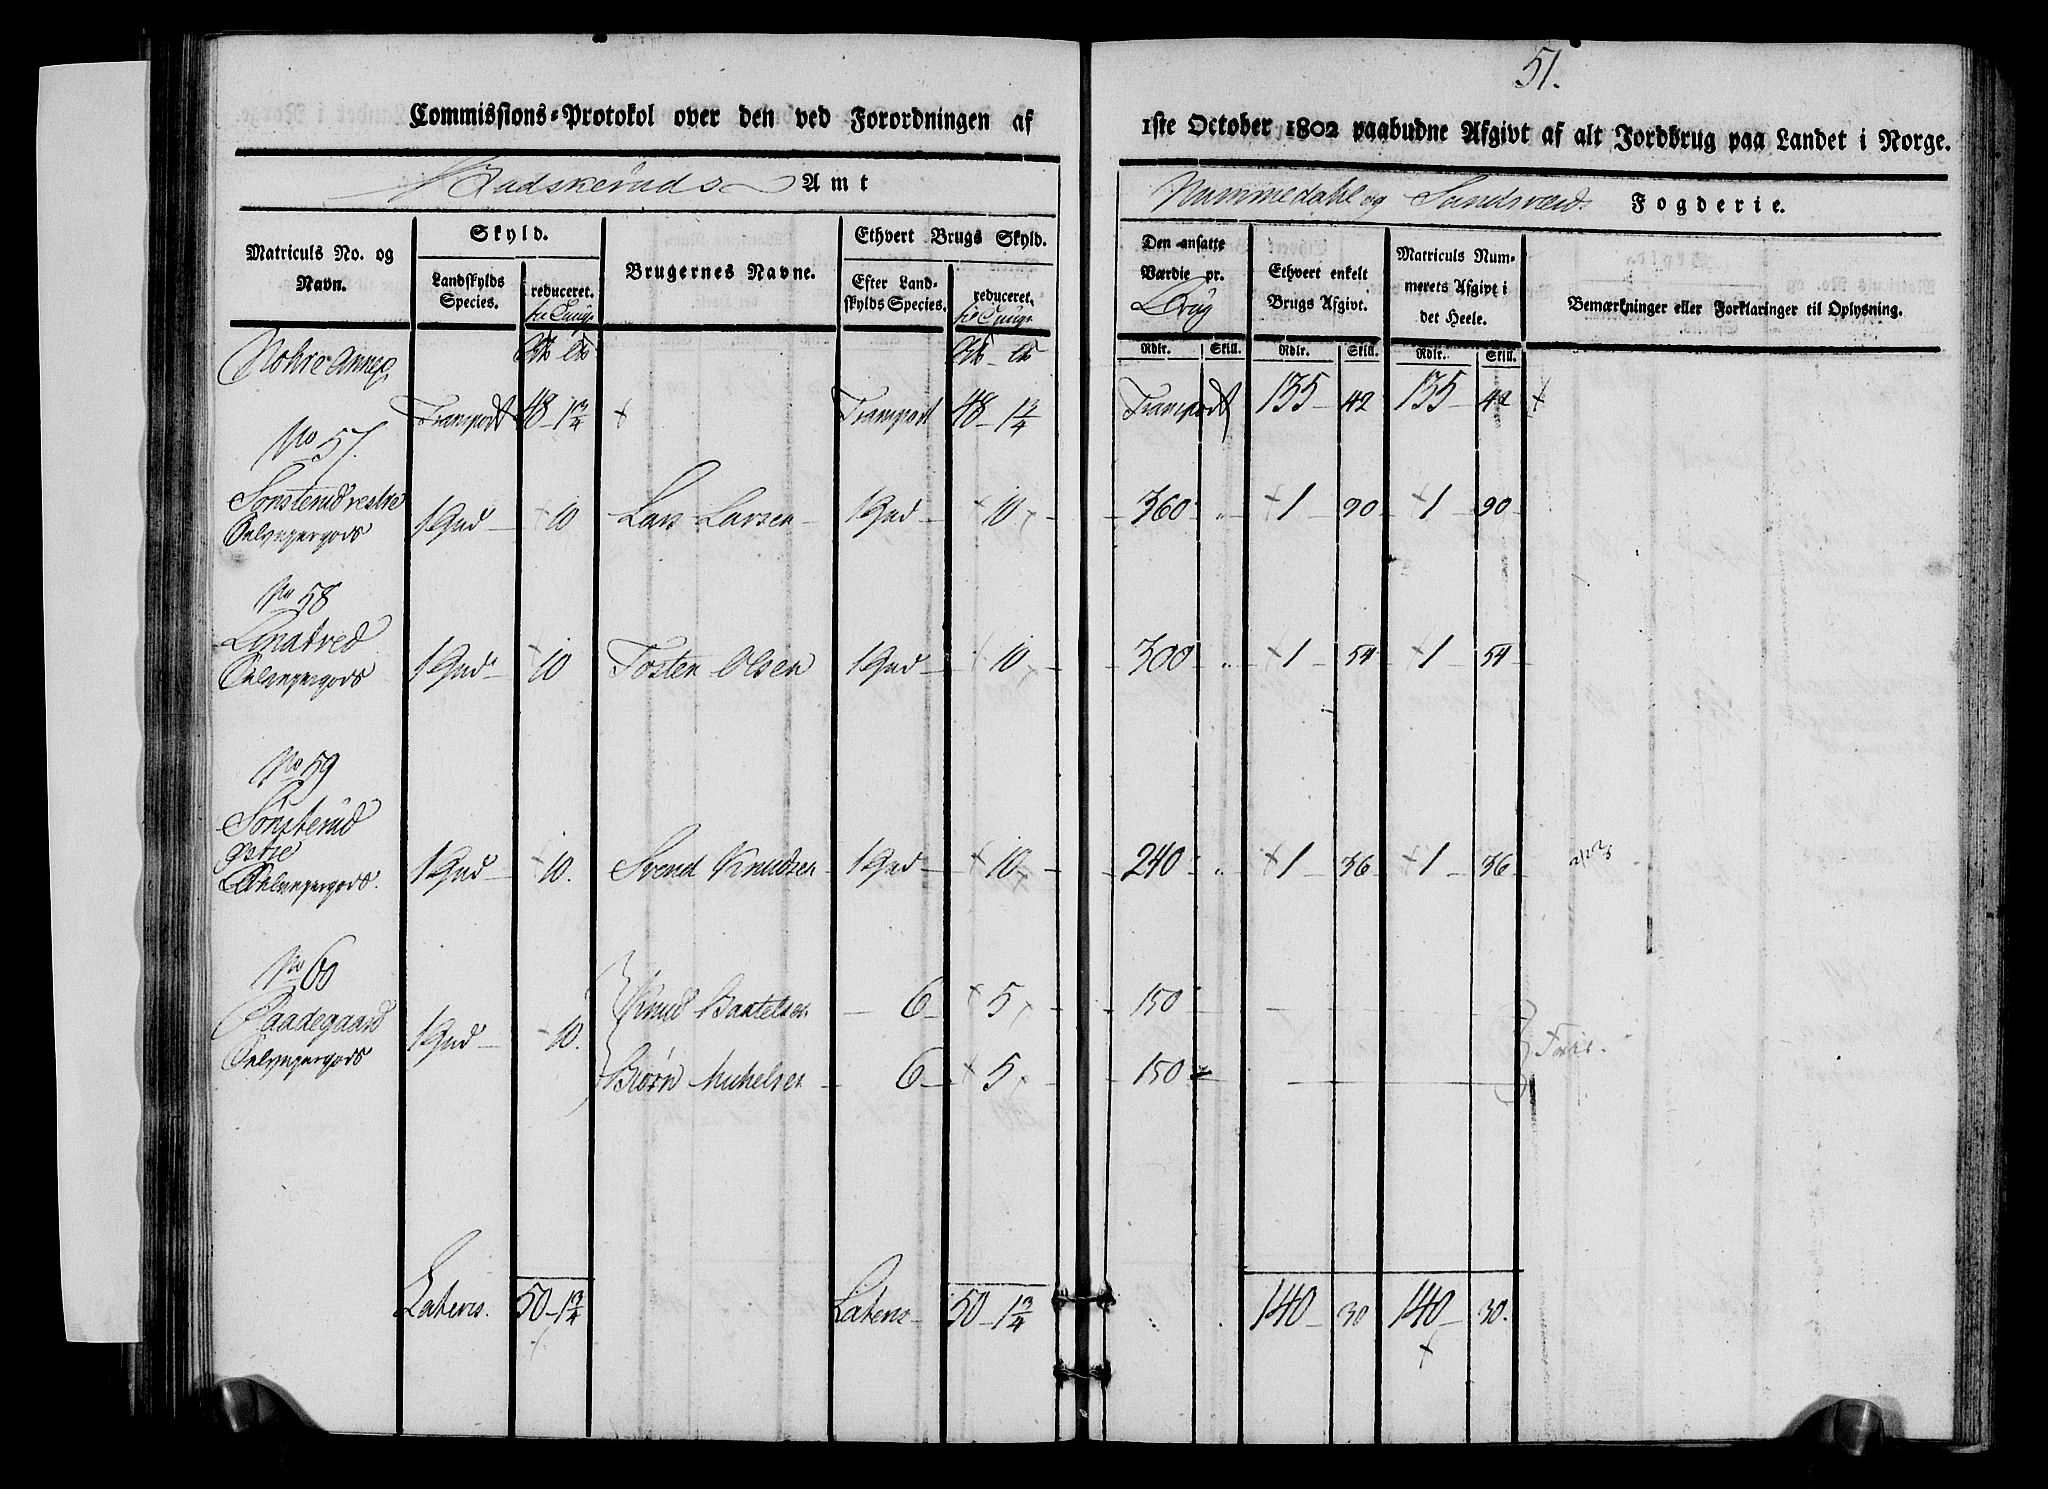 51.
Commissions-Protokol over den ved Forordningen af
1ste October 1802 paabudne Afgivt af alt Jordbrug paa Landet i Norge.
Budskeruds Amt
Nummedahl og Sandsværd Fogderie.
Matriculs No. og Navn.
Skyld.
Landskylds Species.
reduceret. til Tunge
Brugernes Navne.
Ethvert Brugs Skyld.
Efter Landskylds Species.
reduceret. til Tunge
Den ansatte Værdie pr. Brug
Ethvert enkelt Brugs Afgivt.
Matriculs Nummerets Afgivt i det Heele.
Bemærkninger eller Forklaringer til Oplysning.
Rdlr. Skill. Rdlr. Skill. Rdlr. Skill.
Transport 48 - 1 3/4 + Transport 48 - 1 3/4 Transport 135 - 42 135 - 42 +
No 57.
Sønsterud vestre
Selvejergods 1 Hud - 10 Lars Larsen - 1 Hud - 10 - 360 „ 1 - 90 - 1 - 90 -
No 58
Selvejergods 1 Hud - 10 Tosten Olsen 1 Hud - 10 - 300 „ 1 - 54 - 1 - 54 -
No 59
Sønsterud
østre
Selvejergods. 1 Hud - 10. Svend Knudsen 1 Hud - 10 - 240 „ 1 - 36 - 1 - 36 -
No 60
Raadegaard
Selvejergods 1 Hud - 10.
Knud - 6 - 5 - 150
Biørn Michelsen - 6 - 5 - 150
Lateris. 50 - 1 3/4 Lateris - 50 - 1 3/4 140 - 30 140 - 30.
+